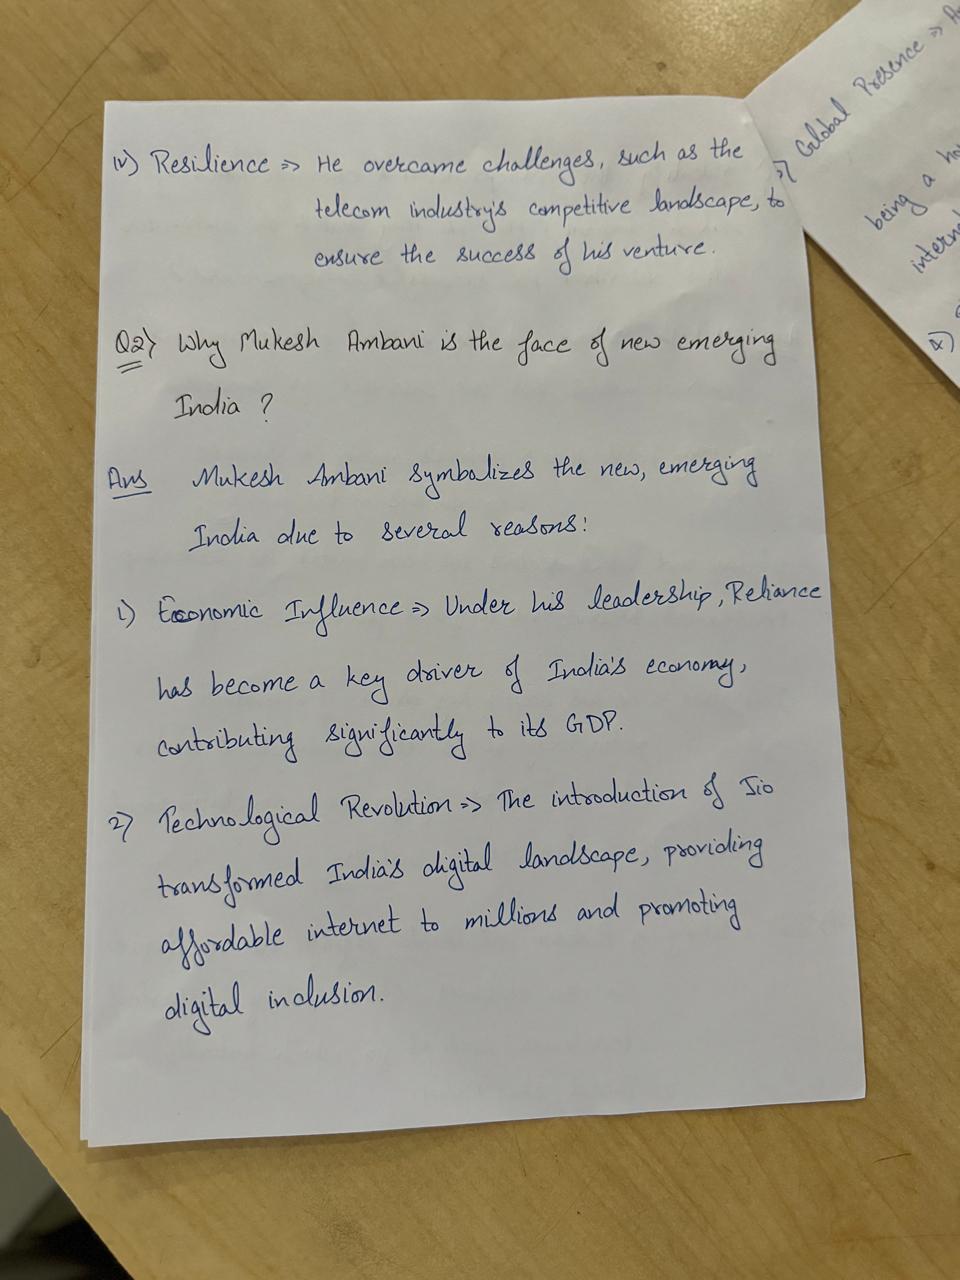 IV) Resilience => He overcame challenges, such as the
telecom industry's competitive landscape, to
ensure the success of his venture.
Q2) Why Mukesh Ambani is the face of new emerging
India ?
Ans Mukesh Ambani symbolizes the new, emerging
India due to several reasons:
1) Economic Influence => Under his leadership, Reliance
has become a key driver of India's economy,
contributing significantly to its GDP.
2) Technological Revolution => The introduction of Jio
transformed India's digital landscape, providing
affordable internet to millions and promoting
digital inclusion.
Global Presence =>
being a
4)